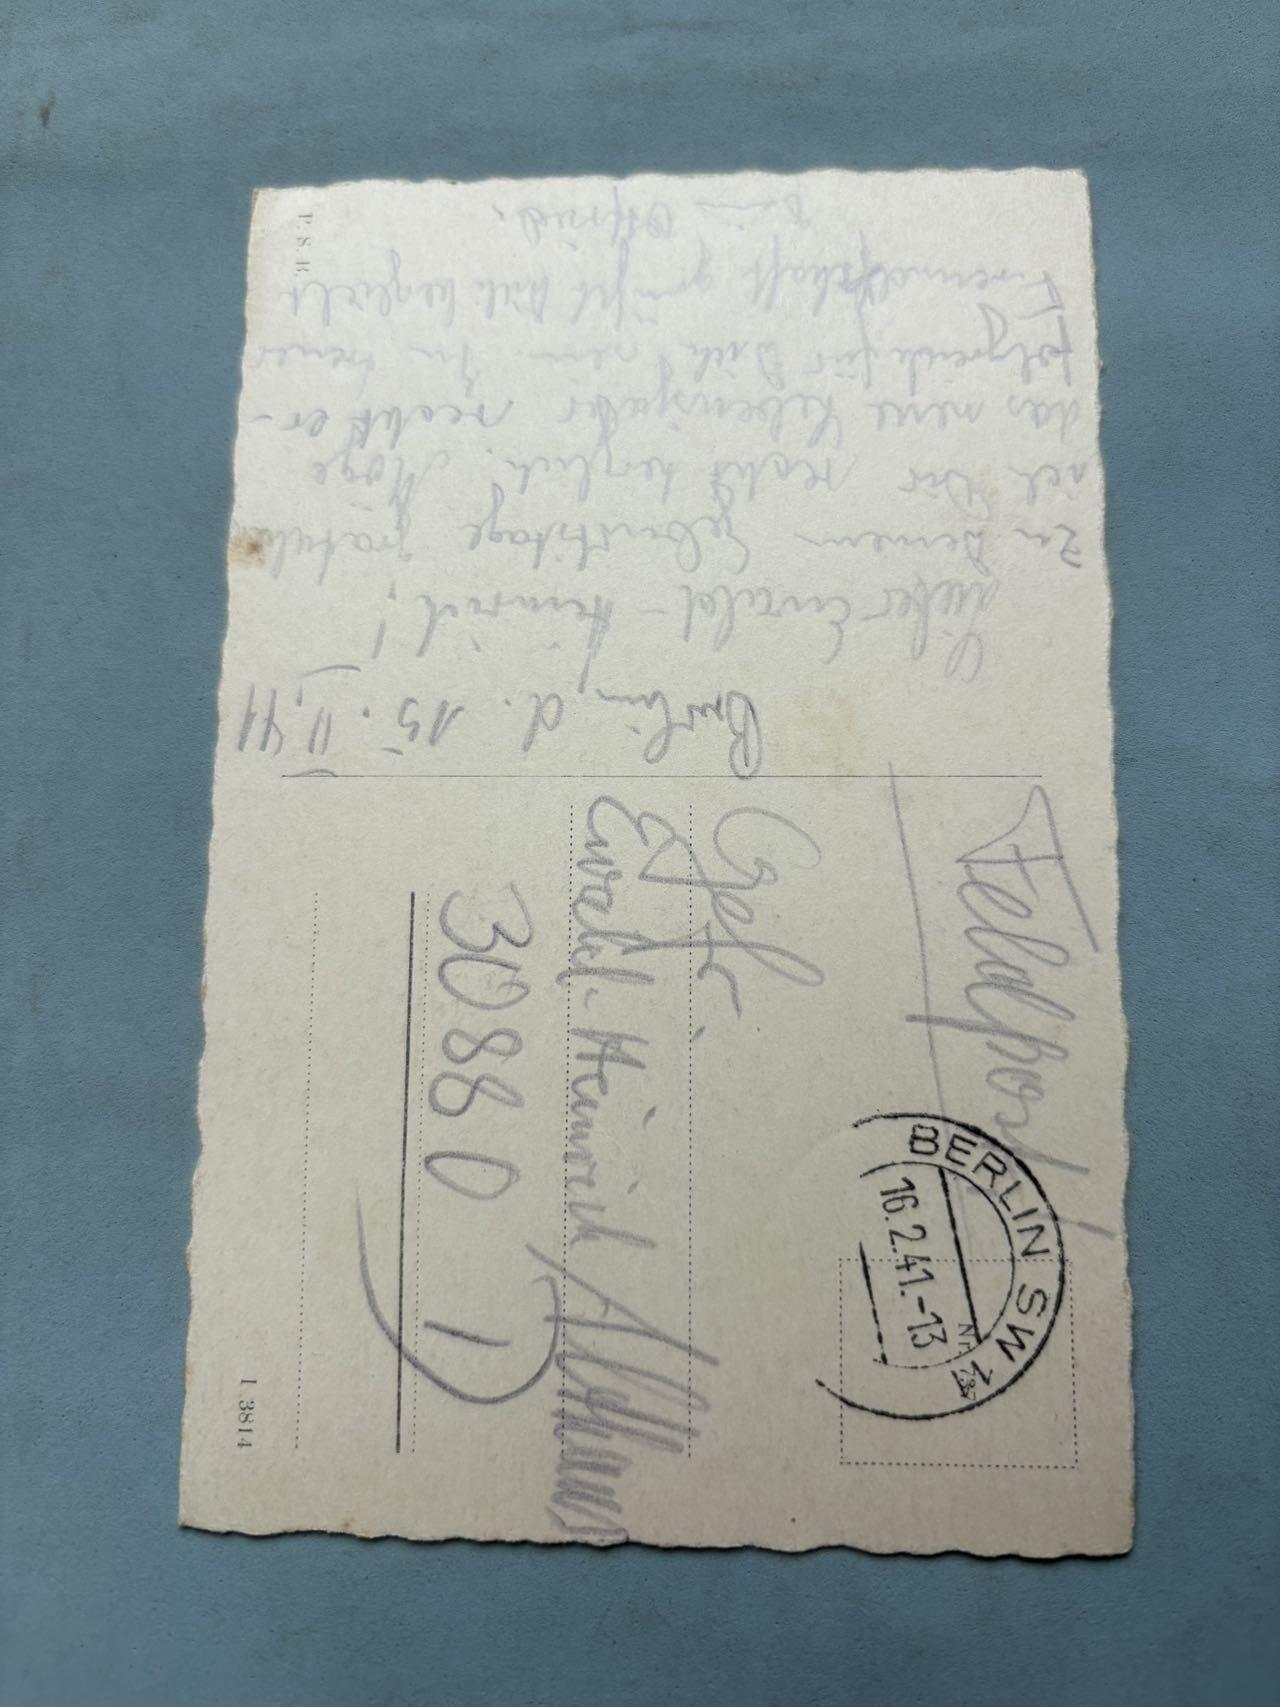 Berlin, d. 15. II. 41
Lieber Ewald-Heinrich!
Zu Deinem Geburtstage gratulie
ich Dir recht herzlich. Möge
das neue Lebensjahr recht er-
folgreich für Dich sein. In treuer
Freundschaft grüßt Dich herzlichst
Dein Ottfried.
Feldpost
BERLIN SW 11
16.2.41.-13
Gefr.
Ewald-Heinrich
30880 D
P. S. B.
I 3814